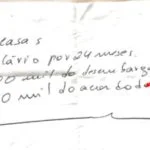 casas
lário por 24 meses
00 mil do desembarga
0 mil do acordod